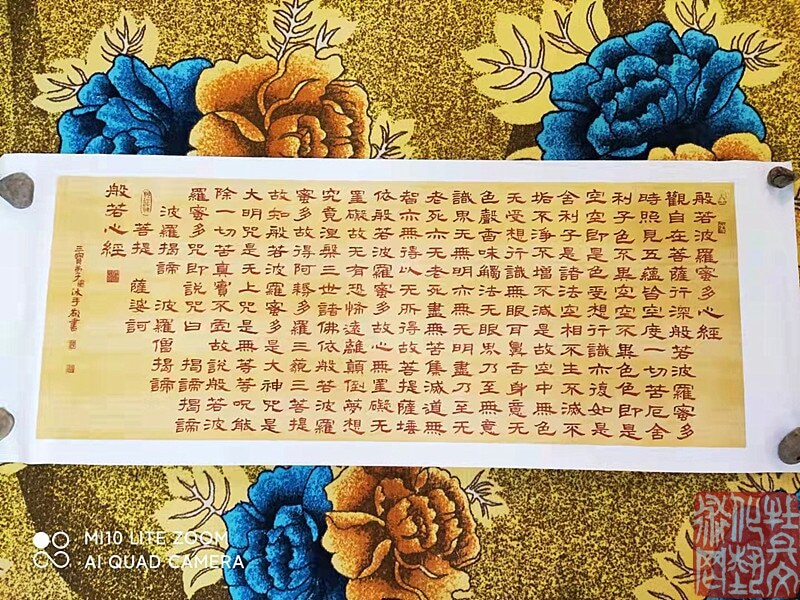 般若波羅蜜多心經
觀自在菩薩行深般若波羅蜜多
時照見五蘊皆空度一切苦厄舍
利子色不異空空不異色色即是
空空即是色受想行識亦復如是
舍利子是諸法空相不生不滅不
垢不淨不增不減是故空中無色
无受想行識無眼耳鼻舌身意无
色聲香味觸法无眼界乃至無意
識界无無明亦無无明盡乃至无
老死亦无老死盡無苦集滅道無
智亦無得以无所得故菩提薩埵
依般若波羅蜜多故心無罣礙无
罣礙故无有恐怖遠離顛倒夢想
究竟涅槃三世諸佛依般若波羅
蜜多故得阿耨多羅三藐三菩提
故知般若波羅蜜多是大神咒是
大明咒是无上咒是無等等呪能
除一切苦真實不虛故說般若波
羅蜜多咒即說咒曰 揭諦揭諦
波羅揭諦 波羅僧揭諦
菩提 薩婆訶
三寶弟子沐手敬書
般若心經
MI 10 LITE ZOOM
AI QUAD CAMERA